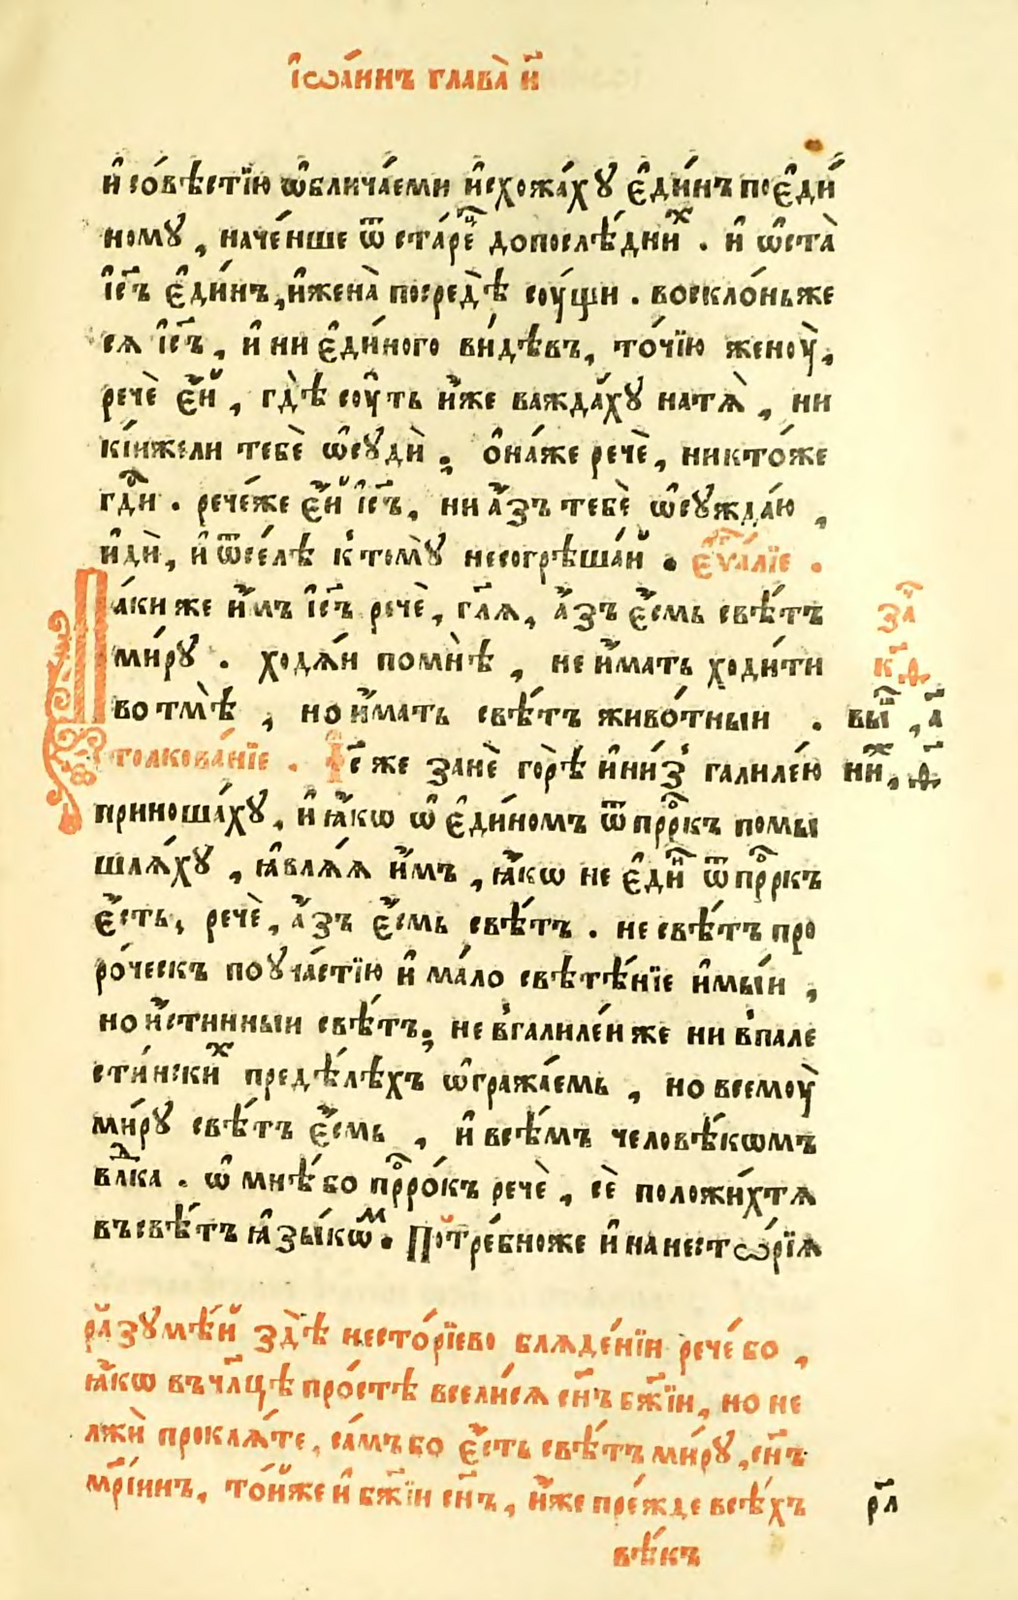 і҆ѡа́ннъ глава̀ и҃
и҆ со́вѣстїю ѡ҆блича́еми и҆схожа́хꙋ є҆ди́нъ поє҆ди́
номꙋ , наче́нше ѿ ста́рєⷰ҇ допослѣ́дниⷯ . и҆ ѡ҆ста̀
і҆с҃ъ є҆ди́нъ , и҆жена̀ посредѣ̀ соу́щи . восклóньже
сѧ і҆с҃ъ , и҆ ни є҆ди́ного ви́дѣвъ , то́чїю женоу̀ ,
речѐ є҆́й , гдѣ̀ соу́ть и҆̀же важда́хꙋ натѧ̀ , ни
кі́йжели тебѐ ѡ҆сꙋдѝ ; ѻ҆на́же речѐ , никто́же
гд҇и . рече́же є҆́й і҆с҃ъ , ни а҆́зъ тебѐ ѡ҆сꙋжда́ю ,
и҆дѝ , и҆ ѿсе́лѣ к̾томꙋ̀ несогрѣша́й . є҆ѵⷢ҇а́лїе .
Па́ки же и҆́мъ і҆с҃ъ речѐ , гл҃ѧ , а҆́зъ є҆́смь свѣ́тъ
ми́рꙋ . ходѧ́й по мнѣ̀ , не и҆́мать ходи́ти
во тмѣ̀ , но и҆́мать свѣ́тъ живо́тныи .
толкова́нїе . І҆с҃ же занѐ горѣ̀ и҆ни́з̾ галиле́ю
приноша́хꙋ , и҆ ꙗ҆́кѡ ѡ҆ є҆ди́номъ ѿ прⷪ҇ркъ помы
шлѧ́хꙋ , ꙗ҆влѧ́ѧ и҆́мъ , ꙗ҆́кѡ не є҆ди́ⷩ҇ ѿ прⷪ҇ркъ
є҆́сть , речѐ , а҆́зъ є҆́смь свѣ́тъ . не свѣ́тъ про
ро́ческъ поꙋча́стїю и҆ ма́ло свѣтѣ́нїе и҆мы́и ,
но и҆́стинныи свѣ́тъ ; не в̾галиле́и же ни в̾пале
сти́нскиⷯ предѣ́лѣхъ ѡ҆гражаемь , но всемоу̀
ми́рꙋ свѣ́тъ є҆́смь , и҆ всѣ́мъ человѣ́кѡмъ
влⷣка . ѡ҆ мнѣ́ бо прⷪ҇ро́къ речѐ , сѐ положи́хтѧ
въ свѣ́тъ ꙗ҆зы́кѡⷨ . Потре́бноже и҆ на несто́рїѧ
разꙋмѣ́й здѣ̀ несто́рїево блѧде́нїи рече́ бо ,
ꙗ҆́кѡ въ чл҃цѣ про́стѣ всели́сѧ сн҃ъ бж҃їи , но не
лжѝ проклѧ́те , са́мъбо є҆́сть свѣ́тъ ми́рꙋ , сн҃ъ
мр҃іинъ , то́йже и҆ бж҃їи сн҃ъ , и҆́же пре́жде всѣ́хъ
вѣ́къ
заⷱ҇
к҃ѳ
выⷲ҇ , а҃
ниⷤ , ѳ҃
рл҃